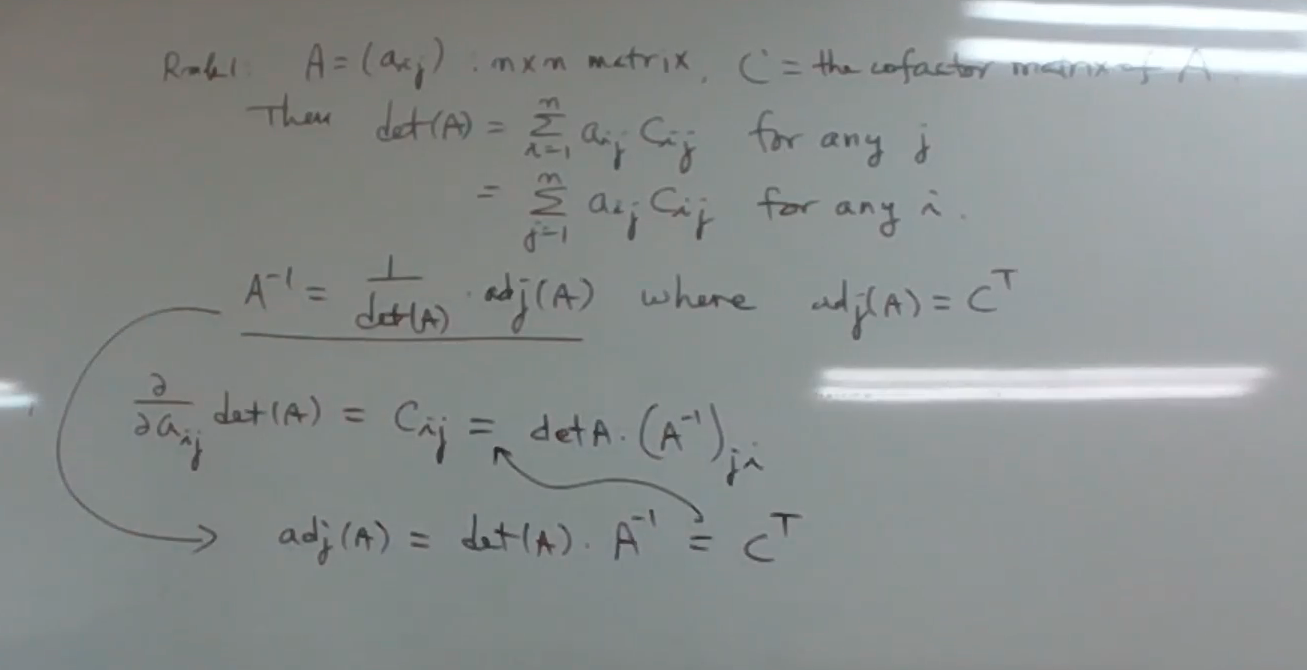 Rmk1. A = (a_ij) : n×n matrix, C = the cofactor matrix of A.
Then det(A) = Σ_{i=1}^{n} a_ij C_ij for any j
= Σ_{j=1}^{n} a_ij C_ij for any i.
A^{-1} = 1/det(A) · adj(A) where adj(A) = C^T
∂/∂a_ij det(A) = C_ij = det A · (A^{-1})_ji
adj(A) = det(A) · A^{-1} = C^T